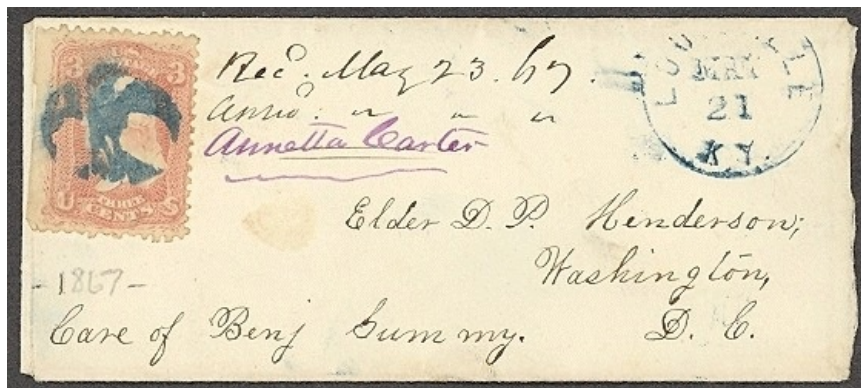 U.S.
3 3
THREE
U CENTS S
Rec'd. May 23. 67.
Ans'd. " " "
Annetta Carter
LOU LLE
MAY
21
KY.
Elder D. P. Henderson;
Washington,
-1867-
Care of Benj Summy. D. C.